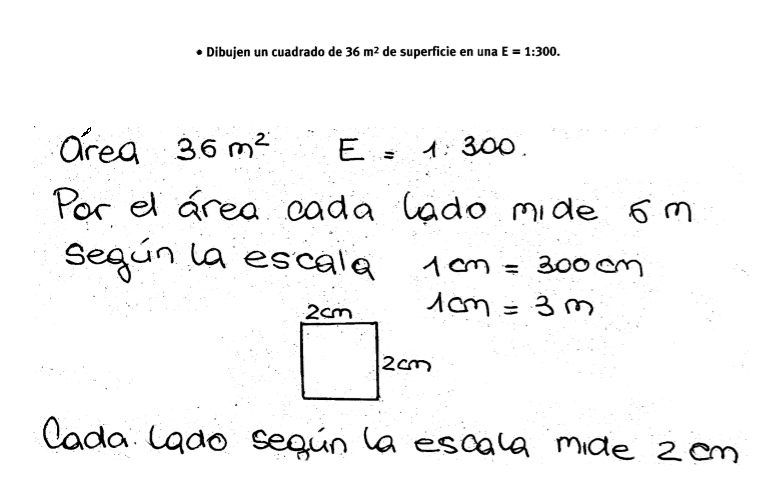 • Dibujen un cuadrado de 36 m² de superficie en una E = 1:300.
área 36 m² E = 1:300.
Por el área cada lado mide 6 m
según la escala 1 cm = 300 cm
1 cm = 3 m
2cm
2cm
Cada lado según la escala mide 2 cm